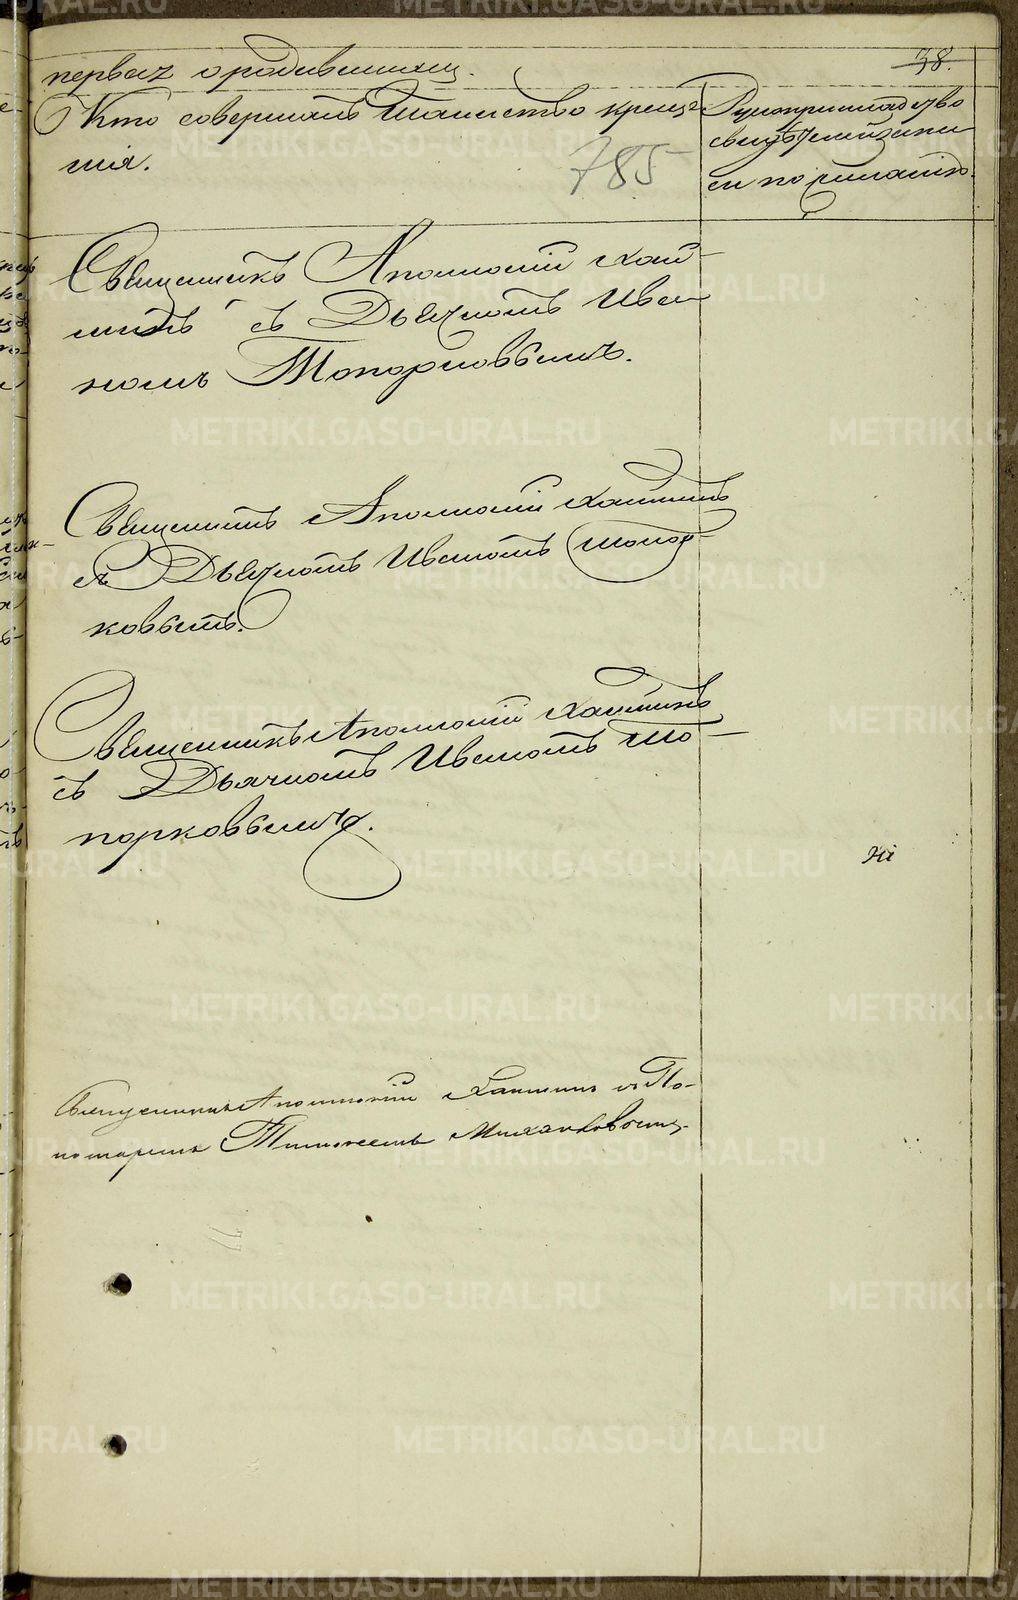 первая о родившихся.
38.
Кто совершалъ Таинство креще-
нія.
785
Рукоприкладство
свидѣтелей записи
по желанію.
Священникъ Аполлоній Хан-
жинъ съ Дьячкомъ Ива-
номъ Топорковымъ.
Священникъ Аполлоній Ханжинъ
съ Дьячкомъ Иваномъ Топор-
ковымъ.
Священникъ Аполлоній Ханжинъ
съ Дьячкомъ Иваномъ То-
порковымъ.
Священникъ Аполлоній Ханжинъ съ По-
номаремъ
METRIKI.GASO-URAL.RU